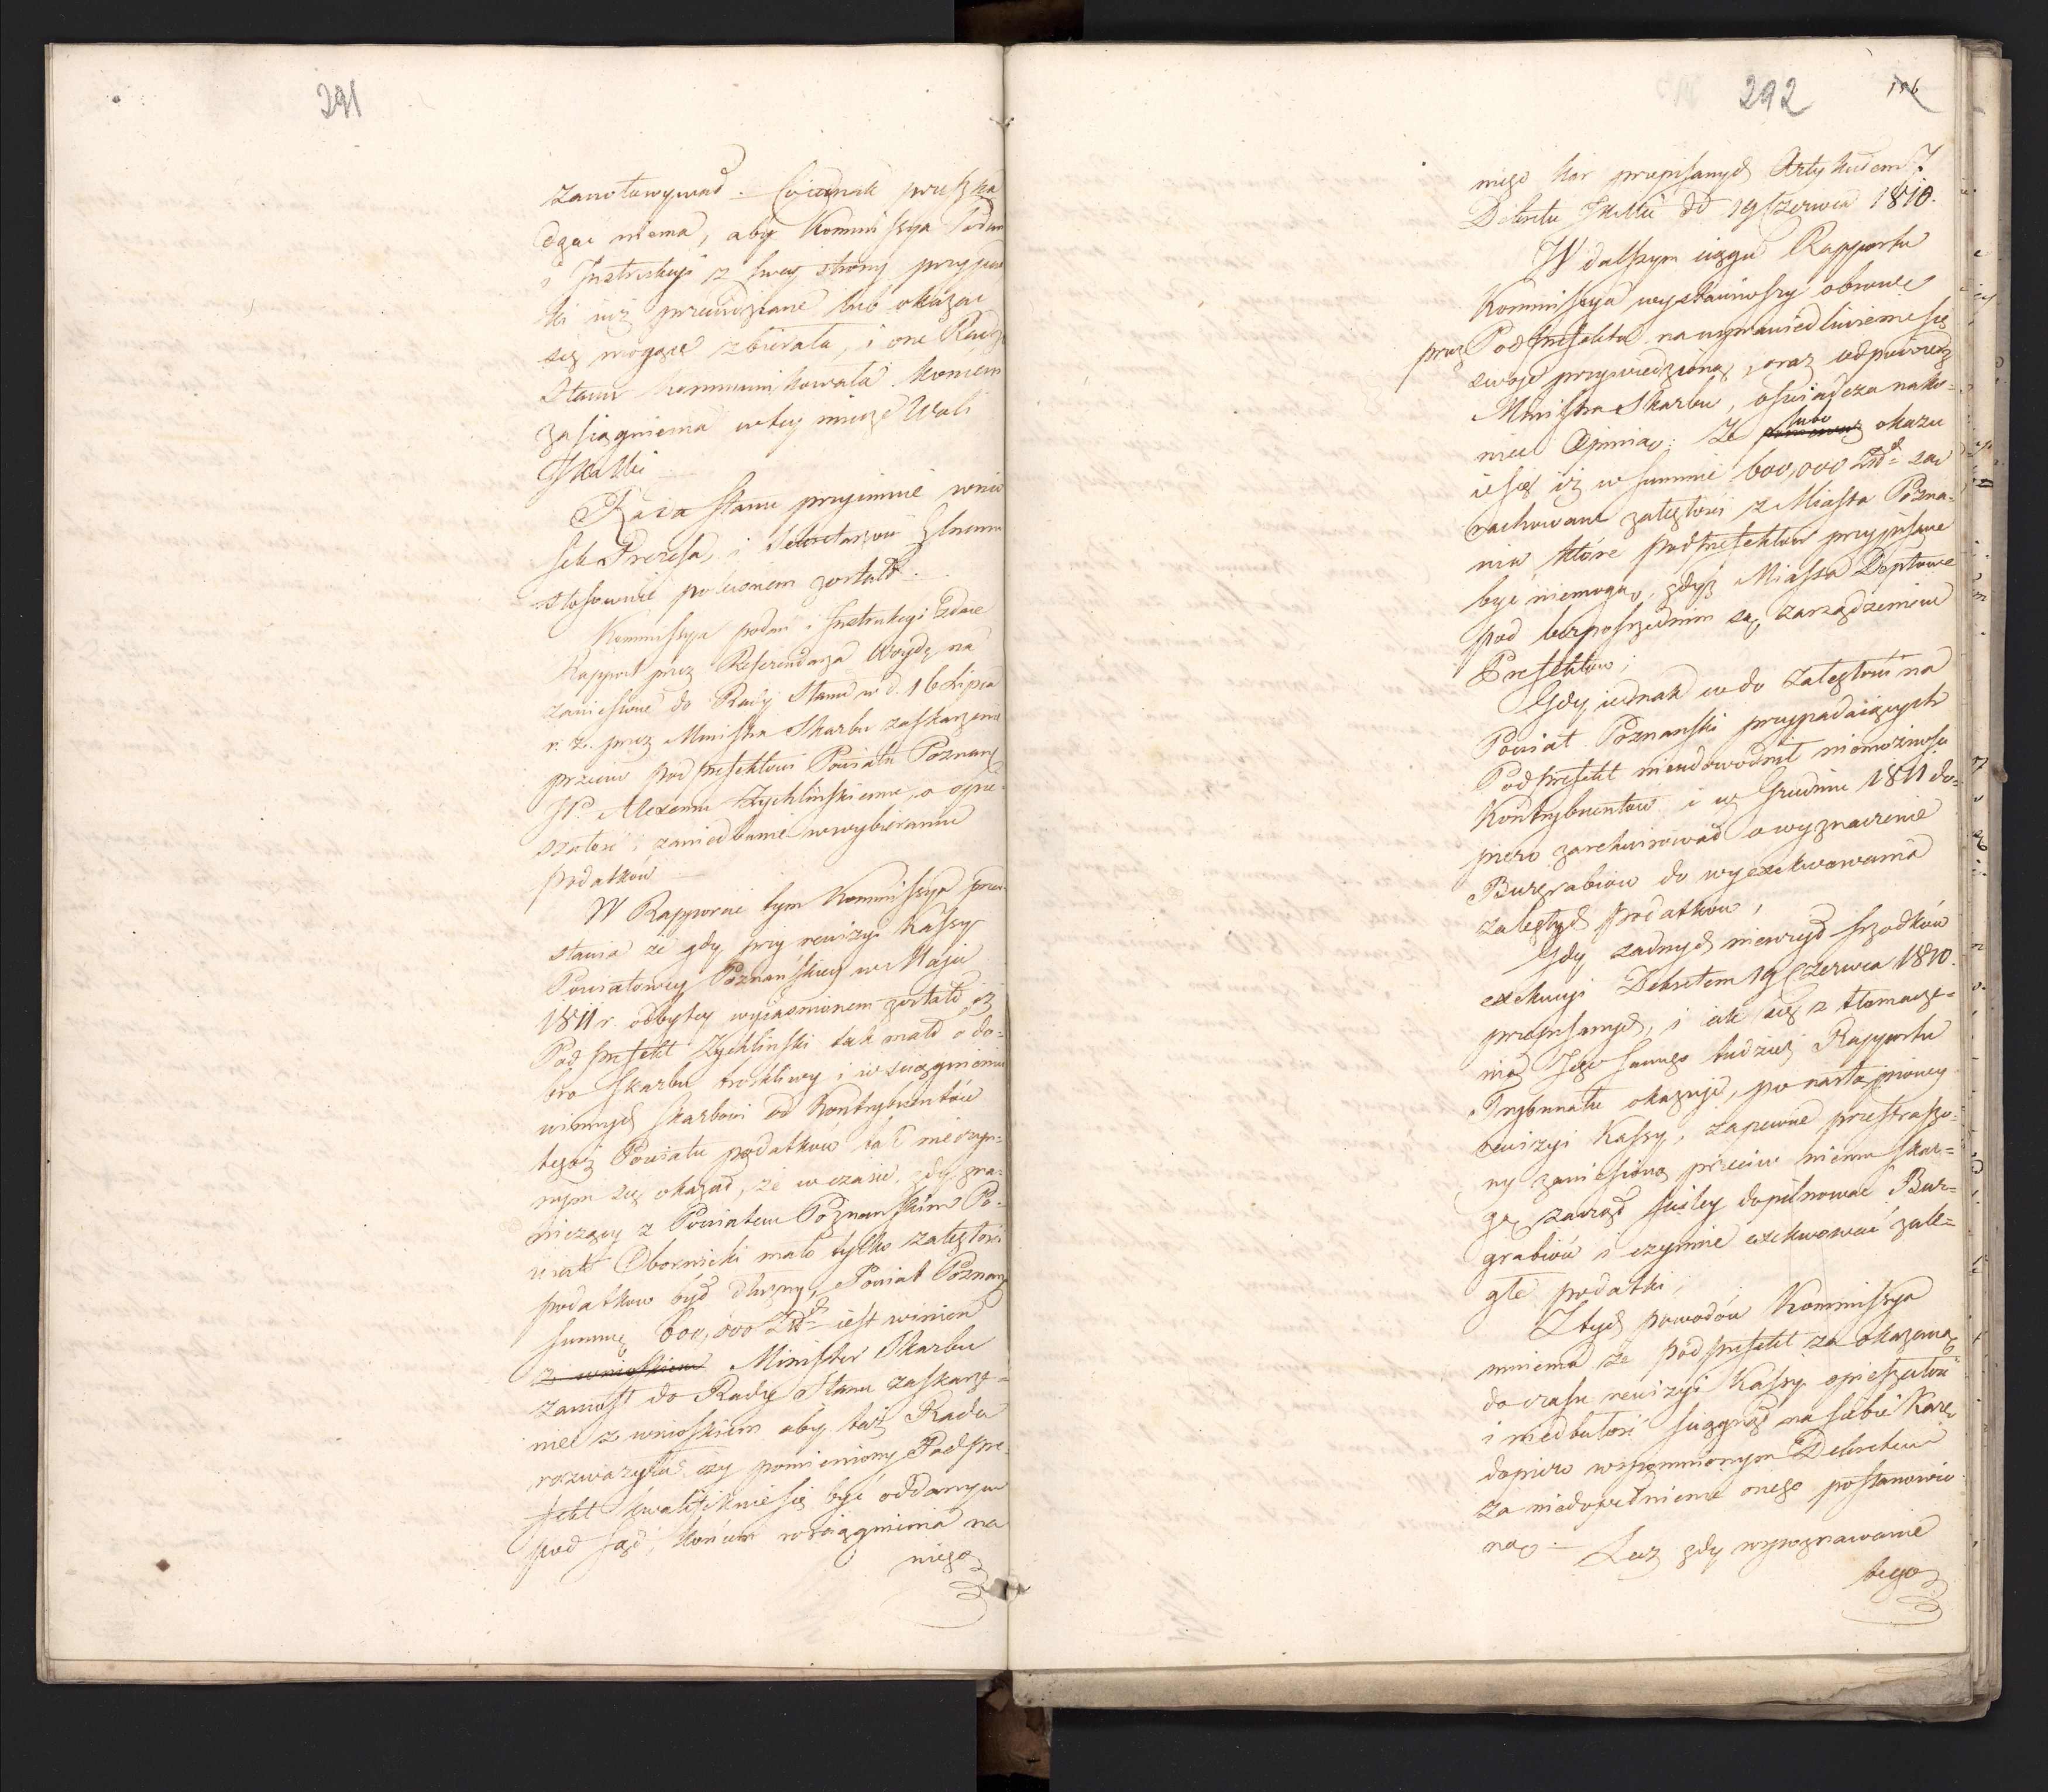 291
zanotowywał. – Co iednak przeszka
dzać niema, aby Kommissya Podań
i Instrukcyi z swey strony przypad
ki iuż przewidziane lub okazać
się mogące zbierała, i one Radzie
Stanu kommunikowała końcem
zasiągnienia w tey mierze Woli
JKMci
Rada Stanu przyimuie wnio
sek Prezesa, i Sekretarzowi Glnemu
stosownie polecionem zostało. –
Kommissya podań i Instrukcyi zdaie
Rapport przez Referendarza Woydę na
zaniesione do Rady Stanu w d. 16 Lipca
r. z. przez Ministra Skarbu zaskarżenie
przeciw Podprefektowi Powiatu Poznańs
JP. Alexemu Zychlinskiemu, o opie-
szałość i zaniedbanie w wybieraniu
podatków –
W Rapporcie tym Kommissya przed
stawia że gdy przy rewizyi Kassy
Powiatowey Poznańskiey w Maju
1811 r. odbytey wyiaśnionem zostało iż
Pod prefekt Zychlinski tak mało o do-
bro Skarbu troskliwy i w ściągnieniu
winnych skarbowi od Kontrybuentów
tegoż Powiatu podatków tak nieczyn-
nym się okazał, że w czasie, gdy gra-
niczący z Powiatem Poznanskim Po-
wiat Obornicki mało tylko zaległości
podatkow był dłużny, Powiat Poznańs
summę 600,000 Złł iest winien
z wnioskiem Minister Skarbu
zaniosł do Rady Stanu zaskarże-
nie z wnioskiem aby taż Rada
rozważyła, czy pomieniony Podpre-
fekt kwalifikuie się być oddanym
pod sąd, końcem rościągnienia na
niego
292
186
niego kar przepisanych Artykułem 7.
Dekretu JKMci dd 19 Czerwca 1810.
W dalszym ciągu Rapportu
Kommissya wystawiwszy obronę
przez Podprefekta na usprawiedliwienie się
swoje przywiedzioną, oraz odpowiedź
Ministra Skarbu, oświadcza nako-
niec Opinią: Ze ponieważ lubo okazu
ie się iż w summie 600,000 Złł są
rachowane zaległości z Miasta Pozna-
nia które podprefektowi przypisane
być niemogą, gdyż Miasta Deptowe
pod bezpośrzednim są zarządzeniem
Prefektow;
Gdy iednak co do zaległości na
Powiat Poznanski przypadaiących
Podprefekt nieudowodnił niemożności
Kontrybuentów i w Grudniu 1811 do-
piero zarekwirował o wyznaczenie
Burgrabiow do wyexekwowania
zaległych podatkow,
Gdy żadnych nieużył srzodków
exekucyi Dekretem 19 Czerwca 1810.
przepisanych, i iak się z tłomacze-
nia Jego samego tudzież Rapportu
Trybunału okazuje, po nastąpioney
rewizyi Kassy, zapewne przestraszo-
ny zaniesioną przeciw niemu skar-
gą zaczął ściśley dopilnować Bur-
grabiów i czynnie exekwować zale-
głe podatki;
Z tych powodów Kommissya
mniema że podprefekt za okazaną
do czasu rewizyi Kassy opieszałość
i niedbałość ściągnął na siebie Karę
dopiero wspomnionym Dekretem
za niedopełnienie onego postanowio
ną. – Lecz gdy wypoznawanie
tego